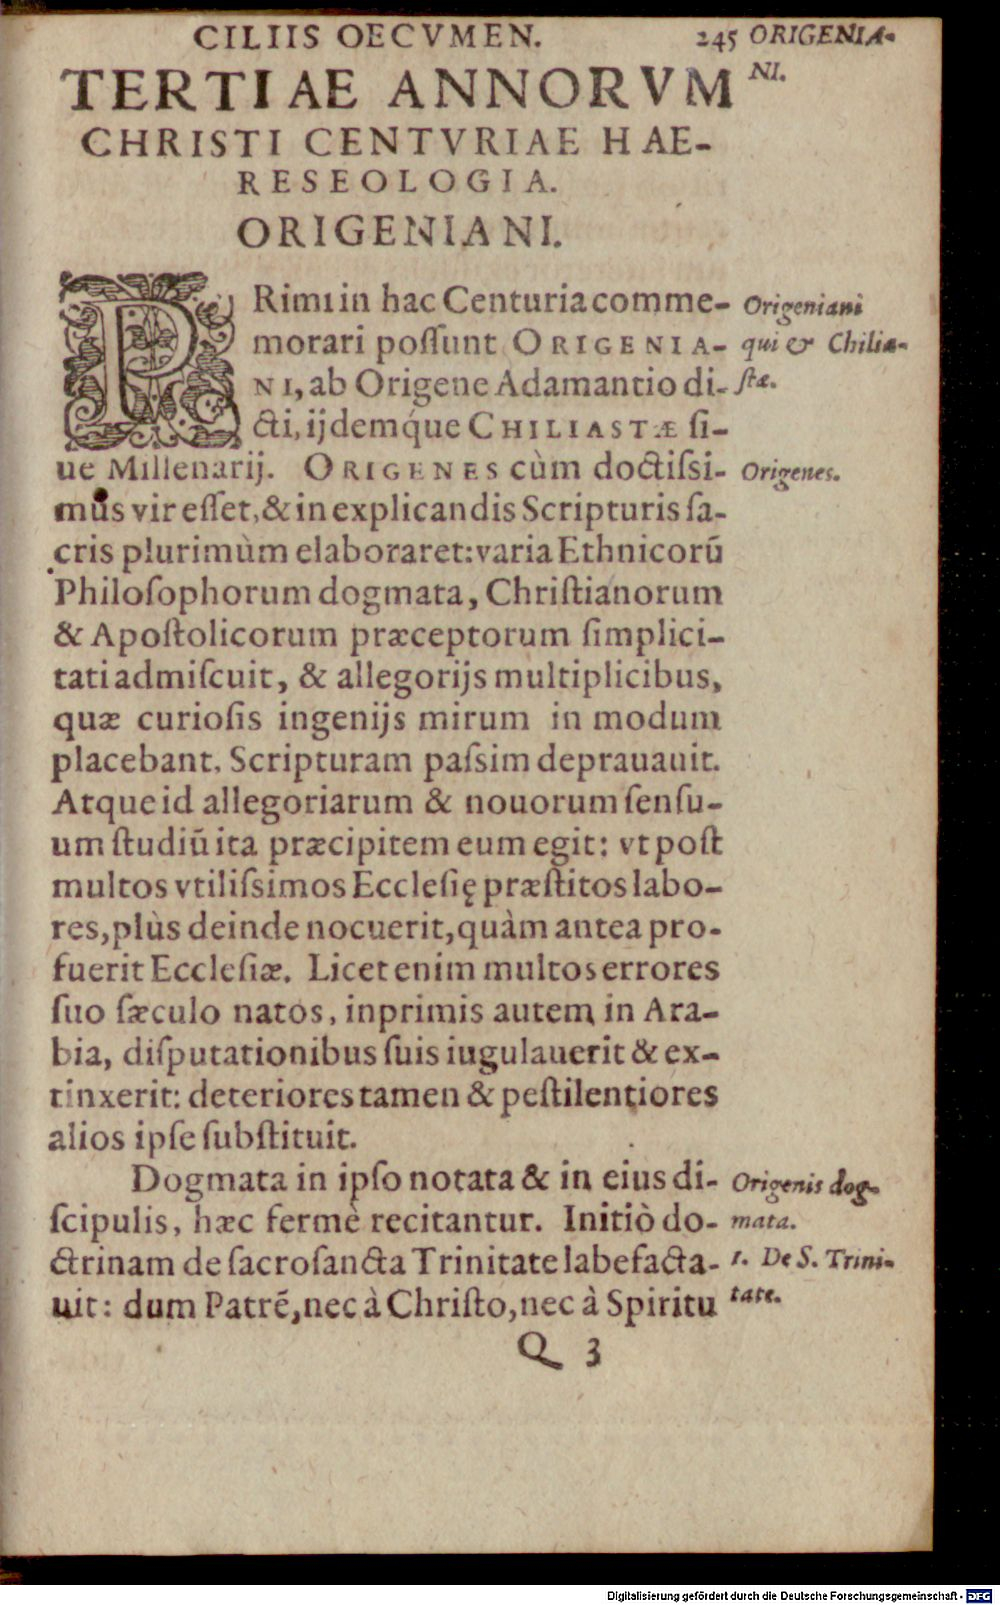 CILIIS OECVMEN. 245 ORIGENIA-
NI.
TERTIAE ANNORVM
CHRISTI CENTVRIAE HAE-
RESEOLOGIA.
ORIGENIANI.
PRimi in hac Centuria comme-
morari poſſunt ORIGENIA-
NI, ab Origene Adamantio di-
cti, ijdemq́ue CHILIASTÆ ſi-
ue Millenarij. ORIGENES cùm doctiſsi-
mus vir eſſet, & in explicandis Scripturis ſa-
cris plurimùm elaboraret: varia Ethnicorũ
Philoſophorum dogmata, Chriſtianorum
& Apoſtolicorum præceptorum ſimplici-
tati admiſcuit, & allegorijs multiplicibus,
quæ curioſis ingenijs mirum in modum
placebant, Scripturam paſsim deprauauit.
Atque id allegoriarum & nouorum ſenſu-
um ſtudiũ ita præcipitem eum egit: vt poſt
multos vtiliſsimos Eccleſię præſtitos labo-
res, plùs deinde nocuerit, quàm antea pro-
fuerit Eccleſiæ. Licet enim multos errores
ſuo ſæculo natos, inprimis autem in Ara-
bia, diſputationibus ſuis iugulauerit & ex-
tinxerit: deteriores tamen & peſtilentiores
alios ipſe ſubſtituit.
Dogmata in ipſo notata & in eius di-
ſcipulis, hæc fermè recitantur. Initiò do-
ctrinam de ſacroſancta Trinitate labefacta-
uit: dum Patrẽ, nec à Chriſto, nec à Spiritu
Q 3
Origeniani
qui & Chiliæ-
ſtæ.
Origenes.
Origenis dog-
mata.
1. De S. Trini-
tate.
Digitalisierung gefördert durch die Deutsche Forschungsgemeinschaft - DFG